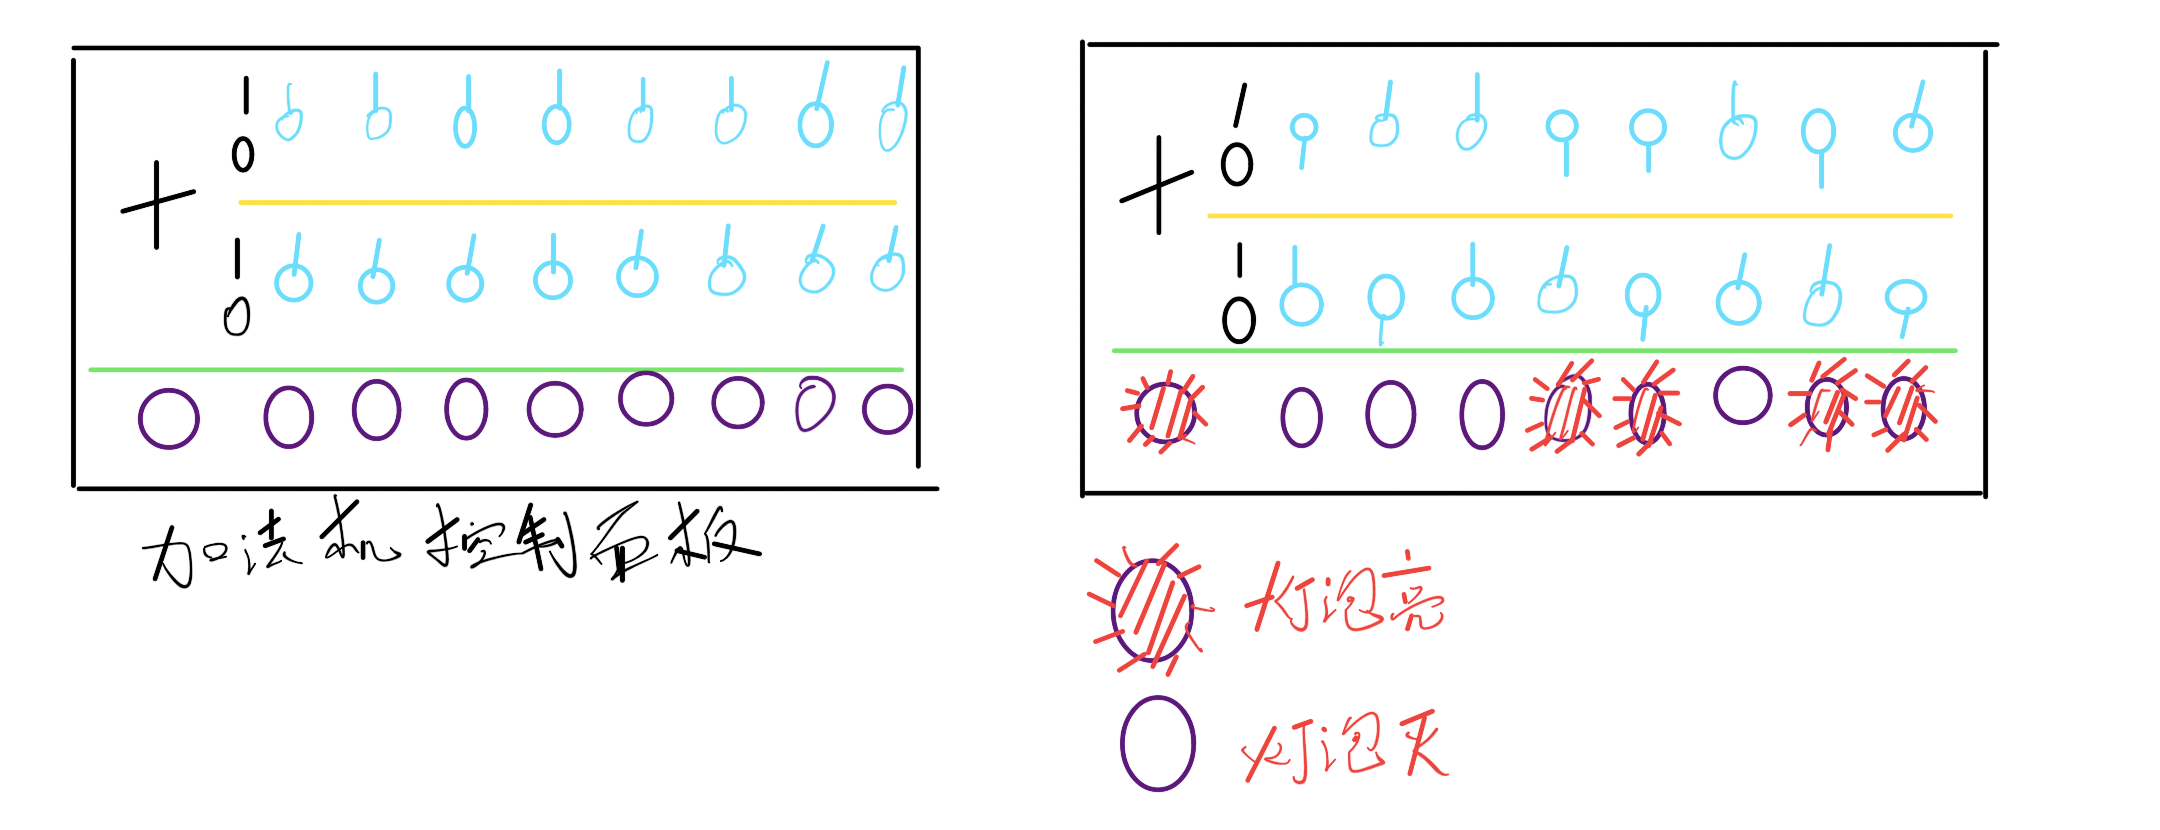 1
0
+
1
0
加法机控制面板
1
0
+
1
0
灯泡亮
灯泡灭